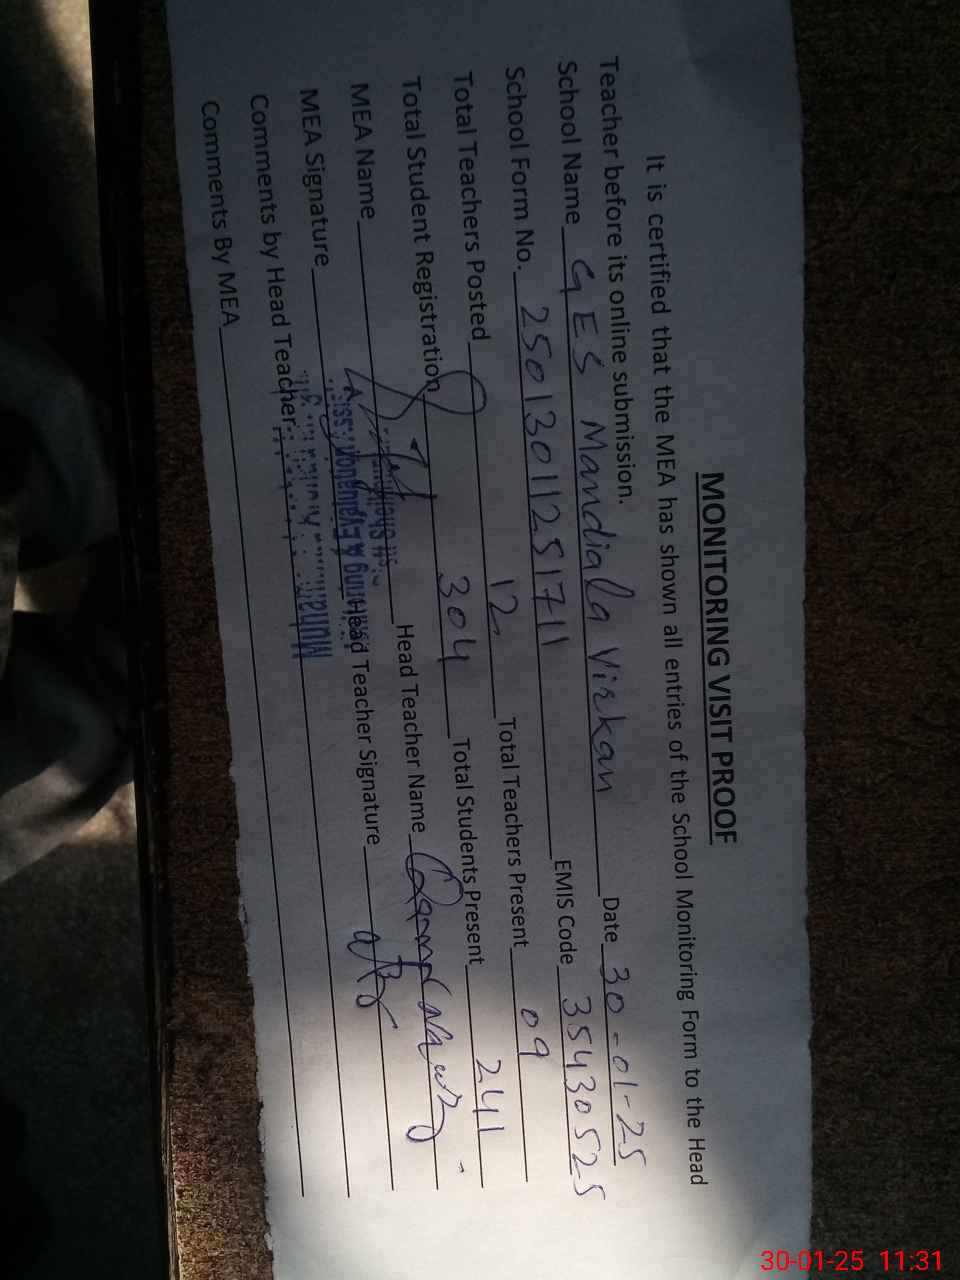 MONITORING VISIT PROOF
It is certified that the MEA has shown all entries of the School Monitoring Form to the Head
Teacher before its online submission.
School Name GES Mandiala Virkan Date 30-01-25
School Form No. 25013011251711 EMIS Code 35430525
Total Teachers Posted 12 Total Teachers Present 09
Total Student Registration 304 Total Students Present 241
MEA Name Head Teacher Name
MEA Signature Head Teacher Signature
Monitoring & Evaluation Assist
Comments by Head Teacher
Comments By MEA
30-01-25 11:31